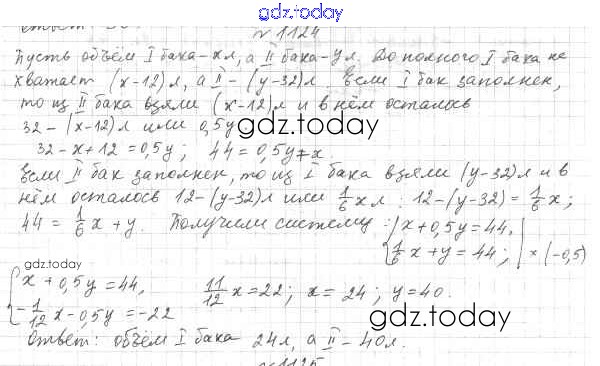 gdz.today
№1124
Пусть объём I бака - x л, а II бака - y л. До полного I бака не
хватает (x-12) л, а II - (y-32) л. Если I бак заполнен,
то из II бака взяли (x-12) л и в нём осталось
32 - (x-12) л или 0,5y
gdz.today
32 - x + 12 = 0,5y; 44 = 0,5y + x.
Если II бак заполнен, то из I бака взяли (y-32) л и в
нём осталось 12 - (y-32) л или 1/6 x л. 12 - (y-32) = 1/6 x;
44 = 1/6 x + y. Получили систему: { x + 0,5y = 44,
1/6 x + y = 44; | × (-0,5)
gdz.today
{ x + 0,5y = 44,
- 1/12 x - 0,5y = -22
11/12 x = 22; x = 24; y = 40.
gdz.today
Ответ: объём I бака 24 л, а II - 40 л.
№1125